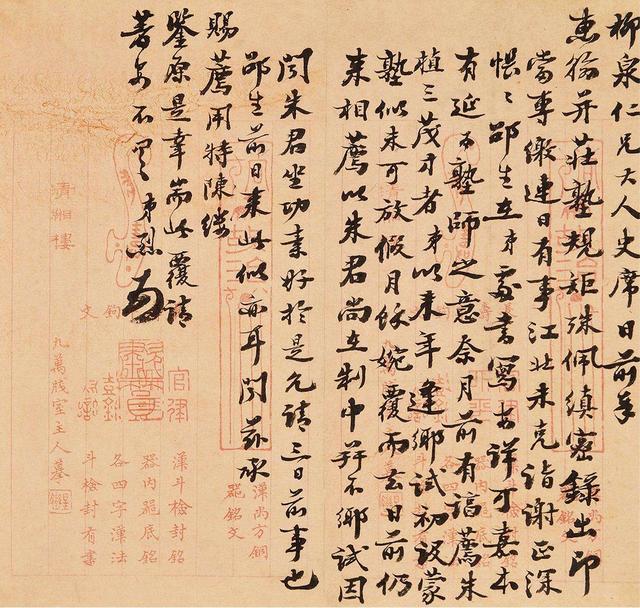 柳泉仁兄大人史席日前奉
惠翰并莊塾規矩殊佩縝密錄出印
當專繳連日有事江北未克詣謝正深
悵〻邵生在弟處書寫安詳可嘉本
有延爲塾師之意奈月前有諄薦朱
植三茂才者弟以來年逢鄉試初設蒙
塾似未可放假月餘婉覆而去日前仍
來相薦以朱君尚在制中并不鄉試因
聞朱君坐功素好於是允請三日前事也
邵生前日來此似亦耳聞茲承
賜薦用特陳縷
鑒原是幸耑此覆請
著安不具 弟烈
漢尚方銅
器銘文
官律
漢斗檢封銘
器內範底銘
各四字漢法
斗檢封有書
文
九萬牋室主人摹
清湘樓